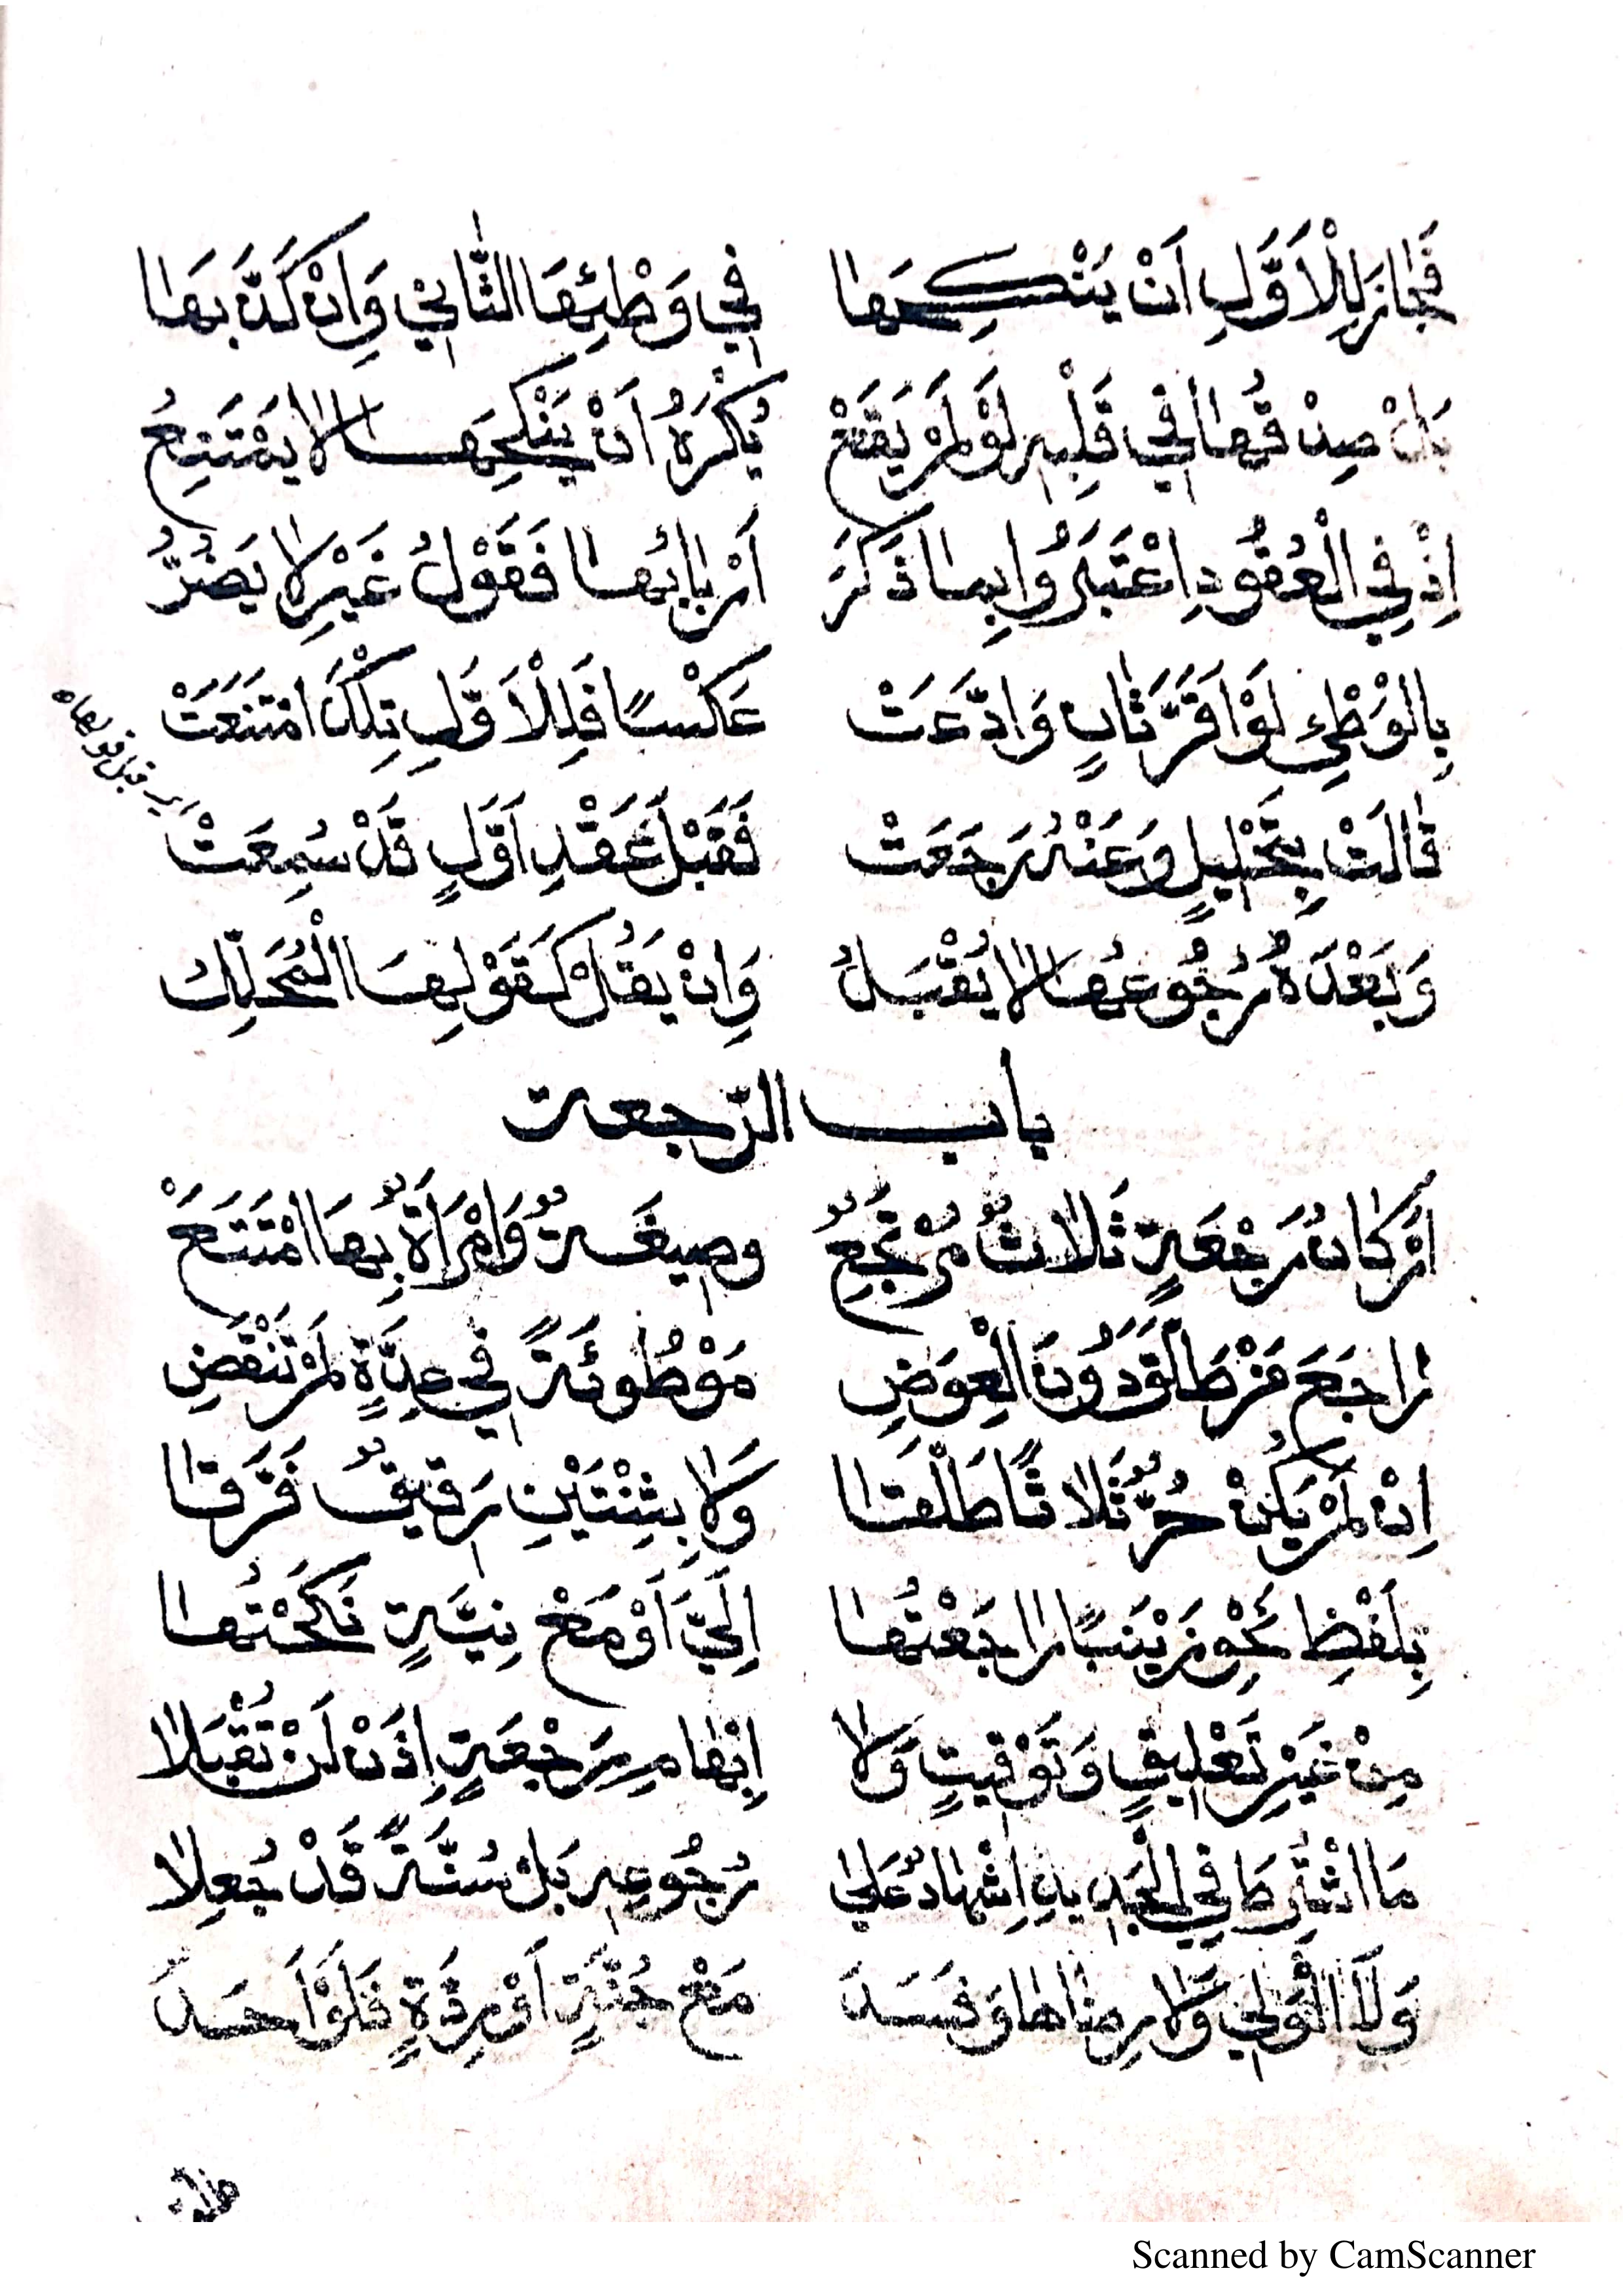 فَجَازَ لِلْاَوَّلِ اَنْ يَنْكِحَهَا فِي وَطْئِهَا الثَّانِي وَاِنْ كَذَّبَهَا
بَلْ صِدْقُهَا فِي قَلْبِهِ لَوْ لَمْ يَقَعْ يُكْرَهُ اَنْ يَنْكِحَهَا لَا يَمْتَنِعُ
اِذْ فِي الْعُقُودِ اعْتَبَرُوا بِمَا ذَكَرَ اَرْبَابُهَا فَقَوْلُ غَيْرٍ لَا يَضُرُّ
بِالْوَطْءِ لَوْ اَقَرَّ ثَانٍ وَادَّعَتْ عَكْسًا فَلِلْاَوَّلِ تِلْكَ امْتَنَعَتْ
قَالَتْ بِتَحْلِيلٍ وَعَنْهُ رَجَعَتْ فَقَبْلَ عَقْدِ اَوَّلٍ قَدْ سُمِعَتْ
وَبَعْدَهُ رُجُوعُهَا لَا يُقْبَلُ وَاِنْ يَقُلْ كَقَوْلِهَا الْمُحَلِّلُ
باب الرّجعة
اَرْكَانُ رَجْعَةٍ ثَلَاثٌ مُرْتَجِعٌ وصِيغَةٌ وَامْرَأَةٌ بِهَا امْتَتَعْ
رَاجَعَ مَنْ طَلَّقَ دُونَ الْعِوَضِ مَوْطُوئَةً فِي عِدَّةٍ لَمْ تَنْقَضِ
اِنْ لَمْ يَكُنْ حُرٌّ ثَلَاثًا طَلَّقَا وَلَا بِثِنْتَيْنِ رَقِيقٌ فَرَّقَا
بِلَفْظِ نَحْوِ زَيْنَبًا رَاجَعْتُهَا اِلَيَّ اَوْ مَعْ نِيَّةٍ نَكَحْتُهَا
مِنْ غَيْرِ تَعْلِيقٍ وَتَوْقِيتٍ وَلَا اِبْهَامِ رَجْعَةٍ اِذَنْ لَنْ تُقْبَلَا
مَا اشْتُرِطَا فِي الْجَدِيدِ اِشْهَادٌ عَلَى رُجُوعِهِ بَلْ سُنَّةً قَدْ جُعِلَا
وَلَا الْوَلِي وَلَا رِضَاهَا وَفَسَدَ مَعْ جُنَّةٍ اَوْ رِدَّةٍ فَلَوْ اَحَدَ
اي قبل قولها